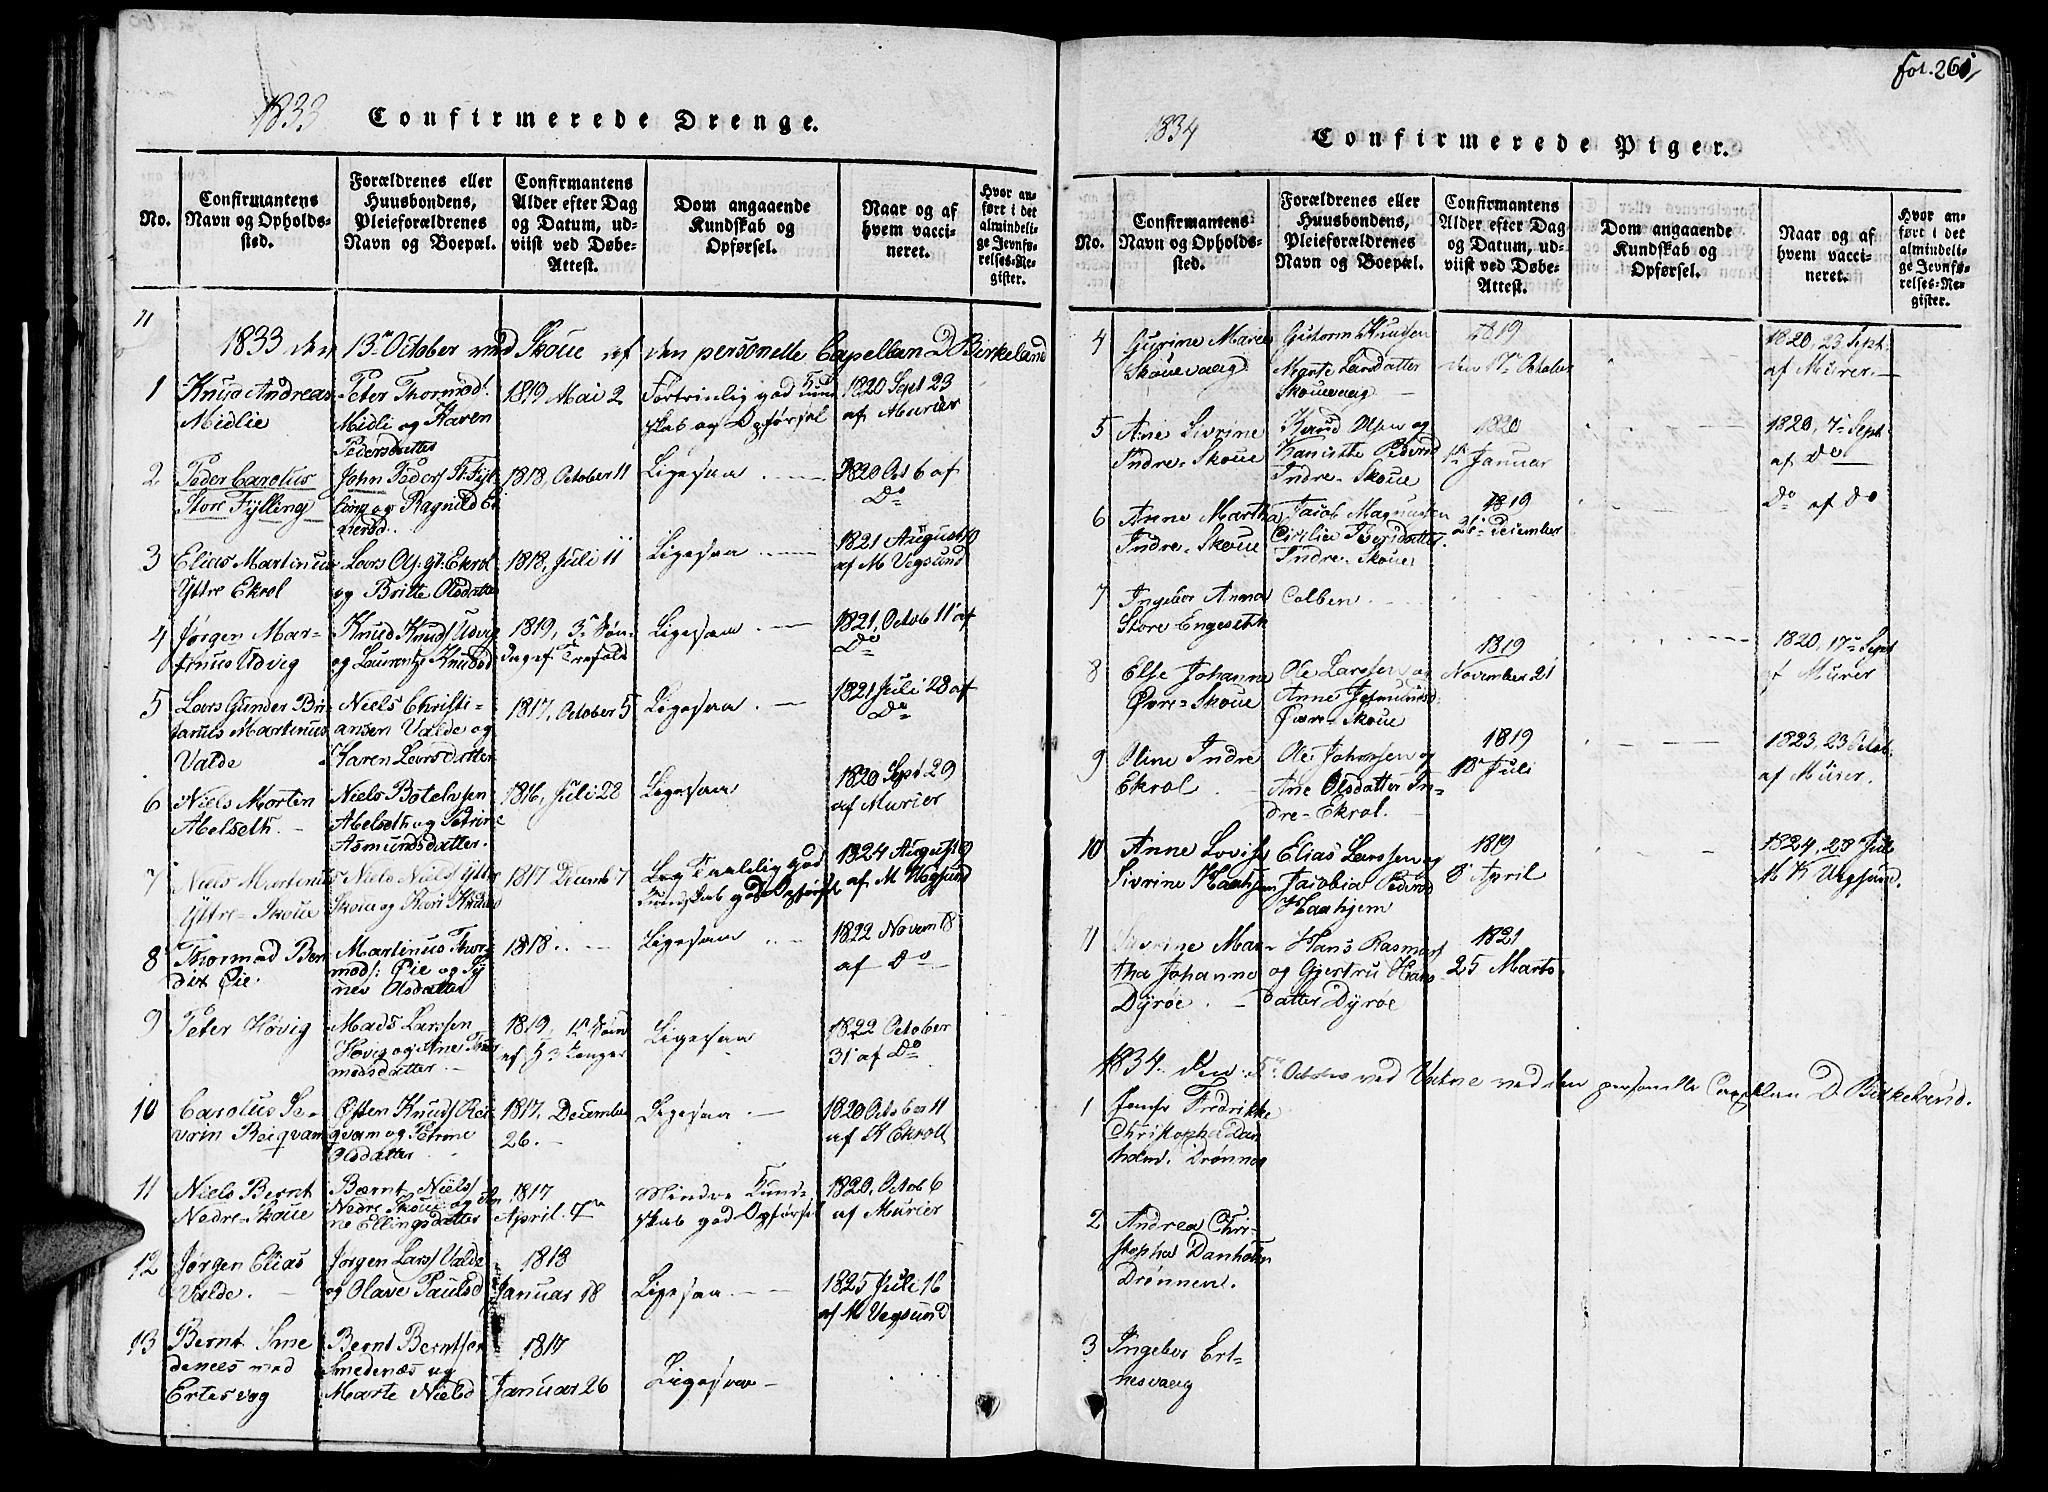 1833 Confirmerede Drenge.
No.
Confirmantens
Navn og Opholds-
sted.
Forældrenes eller
Huusbondens,
Pleieforældrenes
Navn og Boepæl.
Confirmantens
Alder efter Dag
og Datum, ud-
viist ved Døbe-
Attest.
Dom angaaende
Kundskab og
Opførsel.
Naar og af
hvem vacci-
neret.
Hvor an-
ført i det
almindeli-
ge Jevnfø-
relses-Re-
gister.
1833 den 13de October ved Skoue af den personelle Capellan D Birkeland
1 Knud Andreas
Midlie
Peter Thormod
Midli og Karen
Pedersdatter
1819 Mai 2
Fortrinlig god Kund
skab og Opførsel
1820 Sept 23
af Murier
2 Peder Carolus
Store Fylling
John Peders St. Fyl
ling og Ragnild
1818, October 11
Ligesaa
1820 Oct 6 af
Do
3 Elias Martinus
Yttre Ekrol
Lars Ol. yt. Ekrol
og Britte Olsdatter
1818, Juli 11
Ligesaa
1821 August 19
af M Vegsund
4 Jørgen Mar-
tinus Udvig
Knud Knuds Udvig
og Laurentze Knudsd
1819, 3e Søn
dag ef. Trefold
Ligesaa
1821, Octob 11 af
Do
5 Lars Gunder Bri-
tanus Martinus
Valde
Niels Christi-
ansen Valde og
Karen Larsdatter
1817, October 5
Ligesaa
1821 Juli 28 af
Do
6 Niels Morten
Abelseth.
Niels Botelvsen
Abelseth og Petrine
Asmundsdatter.
1816, Juli 28
Ligesaa
1820 Sept 29
af Murier
7 Niels Martinus
Yttre-Skoue
Niels Niels Yttre
Skoue og Kari Knudsd
1817 Decemb 7
Taalelig god
Kundskab god Opførsel
1824 August 9
af M Vegsund
8 Thormod Ben
dix Øie.
Martinus Thor
mods: Øie og Sy
nev Olsdatter
1818
Ligesaa
1822 Novem 18
af Do
9 Peter Høvig
Mads Larssen
Høvig og Ane Thor
modsdatter
1819, 1e Søn
ef. H 3 Konger
Ligesaa
1822 October
31 af Do
10 Carolus Se-
verin Reiqvam
Osten Knuds Rei
qvam og Petrine
Olsdatter
1817, December
26.
Ligesaa
1820 October 11
af K Ekroll
11 Niels Bernt
Nedre-Skoue
Bernt Niels
Nedre Skoue og An
ne Ellingsdatter
1817
April 7de
Mindre Kund-
skab god Opførsel
1820, Octob 6
af Murier
12 Jørgen Elias
Valde.
Jørgen Lars Valde
og Olave Paulsd
1818
Januar 18
Ligesaa
1825 Juli 16
af M Vegsund
13 Bernt Sme
denæs med
Ertesvog
Bernt Berntsen
Smedenæs og
Marte Nielsd
1817
Januar 26
Ligesaa
fol. 261
1834 Confirmerede Piger.
No.
Confirmantens
Navn og Opholds-
sted.
Forældrenes eller
Huusbondens,
Pleieforældrenes
Navn og Boepæl.
Confirmantens
Alder efter Dag
og Datum, ud-
viist ved Døbe-
Attest.
Dom angaaende
Kundskab og
Opførsel.
Naar og af
hvem vacci-
neret.
Hvor an-
ført i det
almindeli-
ge Jevnfø-
relses-Re-
gister.
4 Gurine Marie
Skouevaag
Gutorm Knudsen
Marte Larsdatter
Skouevaag
1819
den 17de October
1820, 23 Sept.
af Murer.
5 Ane Sivrine
Indre-Skoue
Knud Olsen og
Pedersd
Indre-Skoue
1820
Januar
1820, 7de Sept
af Do
6 Anne Martha
Indre-Skoue
Jacob Magnussen
Cicilia Iversdatter
Indre-Skoue
1819
26 December
Do af Do
7 Ingebor Anna
Store Engeseth
Colben
8 Else Johanna
Øvre-Skoue
Ole Larssen og
Anne
Øvre-Skoue
1819
November 21
1820, 17de Sept
af Murer
9 Oline Indre
Ekrol
Ole Johnssen og
Ane Olsdatter In-
dre-Ekrol.
1819
18de Juli
1823, 23 Octob.
af Murer.
10 Anne Lovise
Sivrine Haahjem
Elias Larssen og
Jacobia Pedersd
Haahjem
1819
8de April
1824, 28 Juli
M K Vegsund.
11 Sivrine Mar-
tha Johanne
Dyrøe
Hans Rasmus
og Gjertru Hans
datter Dyrøe
1821
25 Marts
1834. den 5te October ved Vatne ved den personelle Capellan D Birkeland.
1 Jomfr Fredrikke
Christopha Dan
holm. Drønnen
2 Andrea Chri-
stopha Danholm
Drønnen.
3 Ingebor Ert-
nesvaag